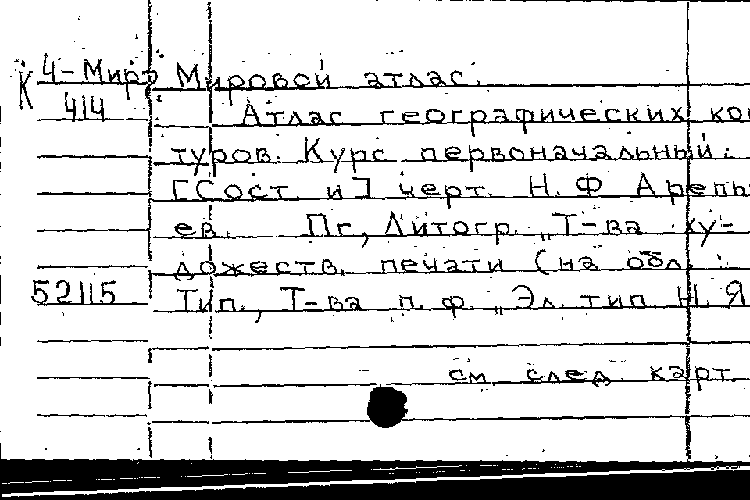 К 4-Мир Мировой атлас.
414 Атлас географических кон
туров. Курс первоначальный.
[Сост. и] черт. Н. Ф. Арепь
ев. Пг, Литогр. „Т-ва ху-
дожеств. печати (на обл.:
52115 Тип., Т-ва п. ф. „Эл. тип. Н. Я
см. след. карт.